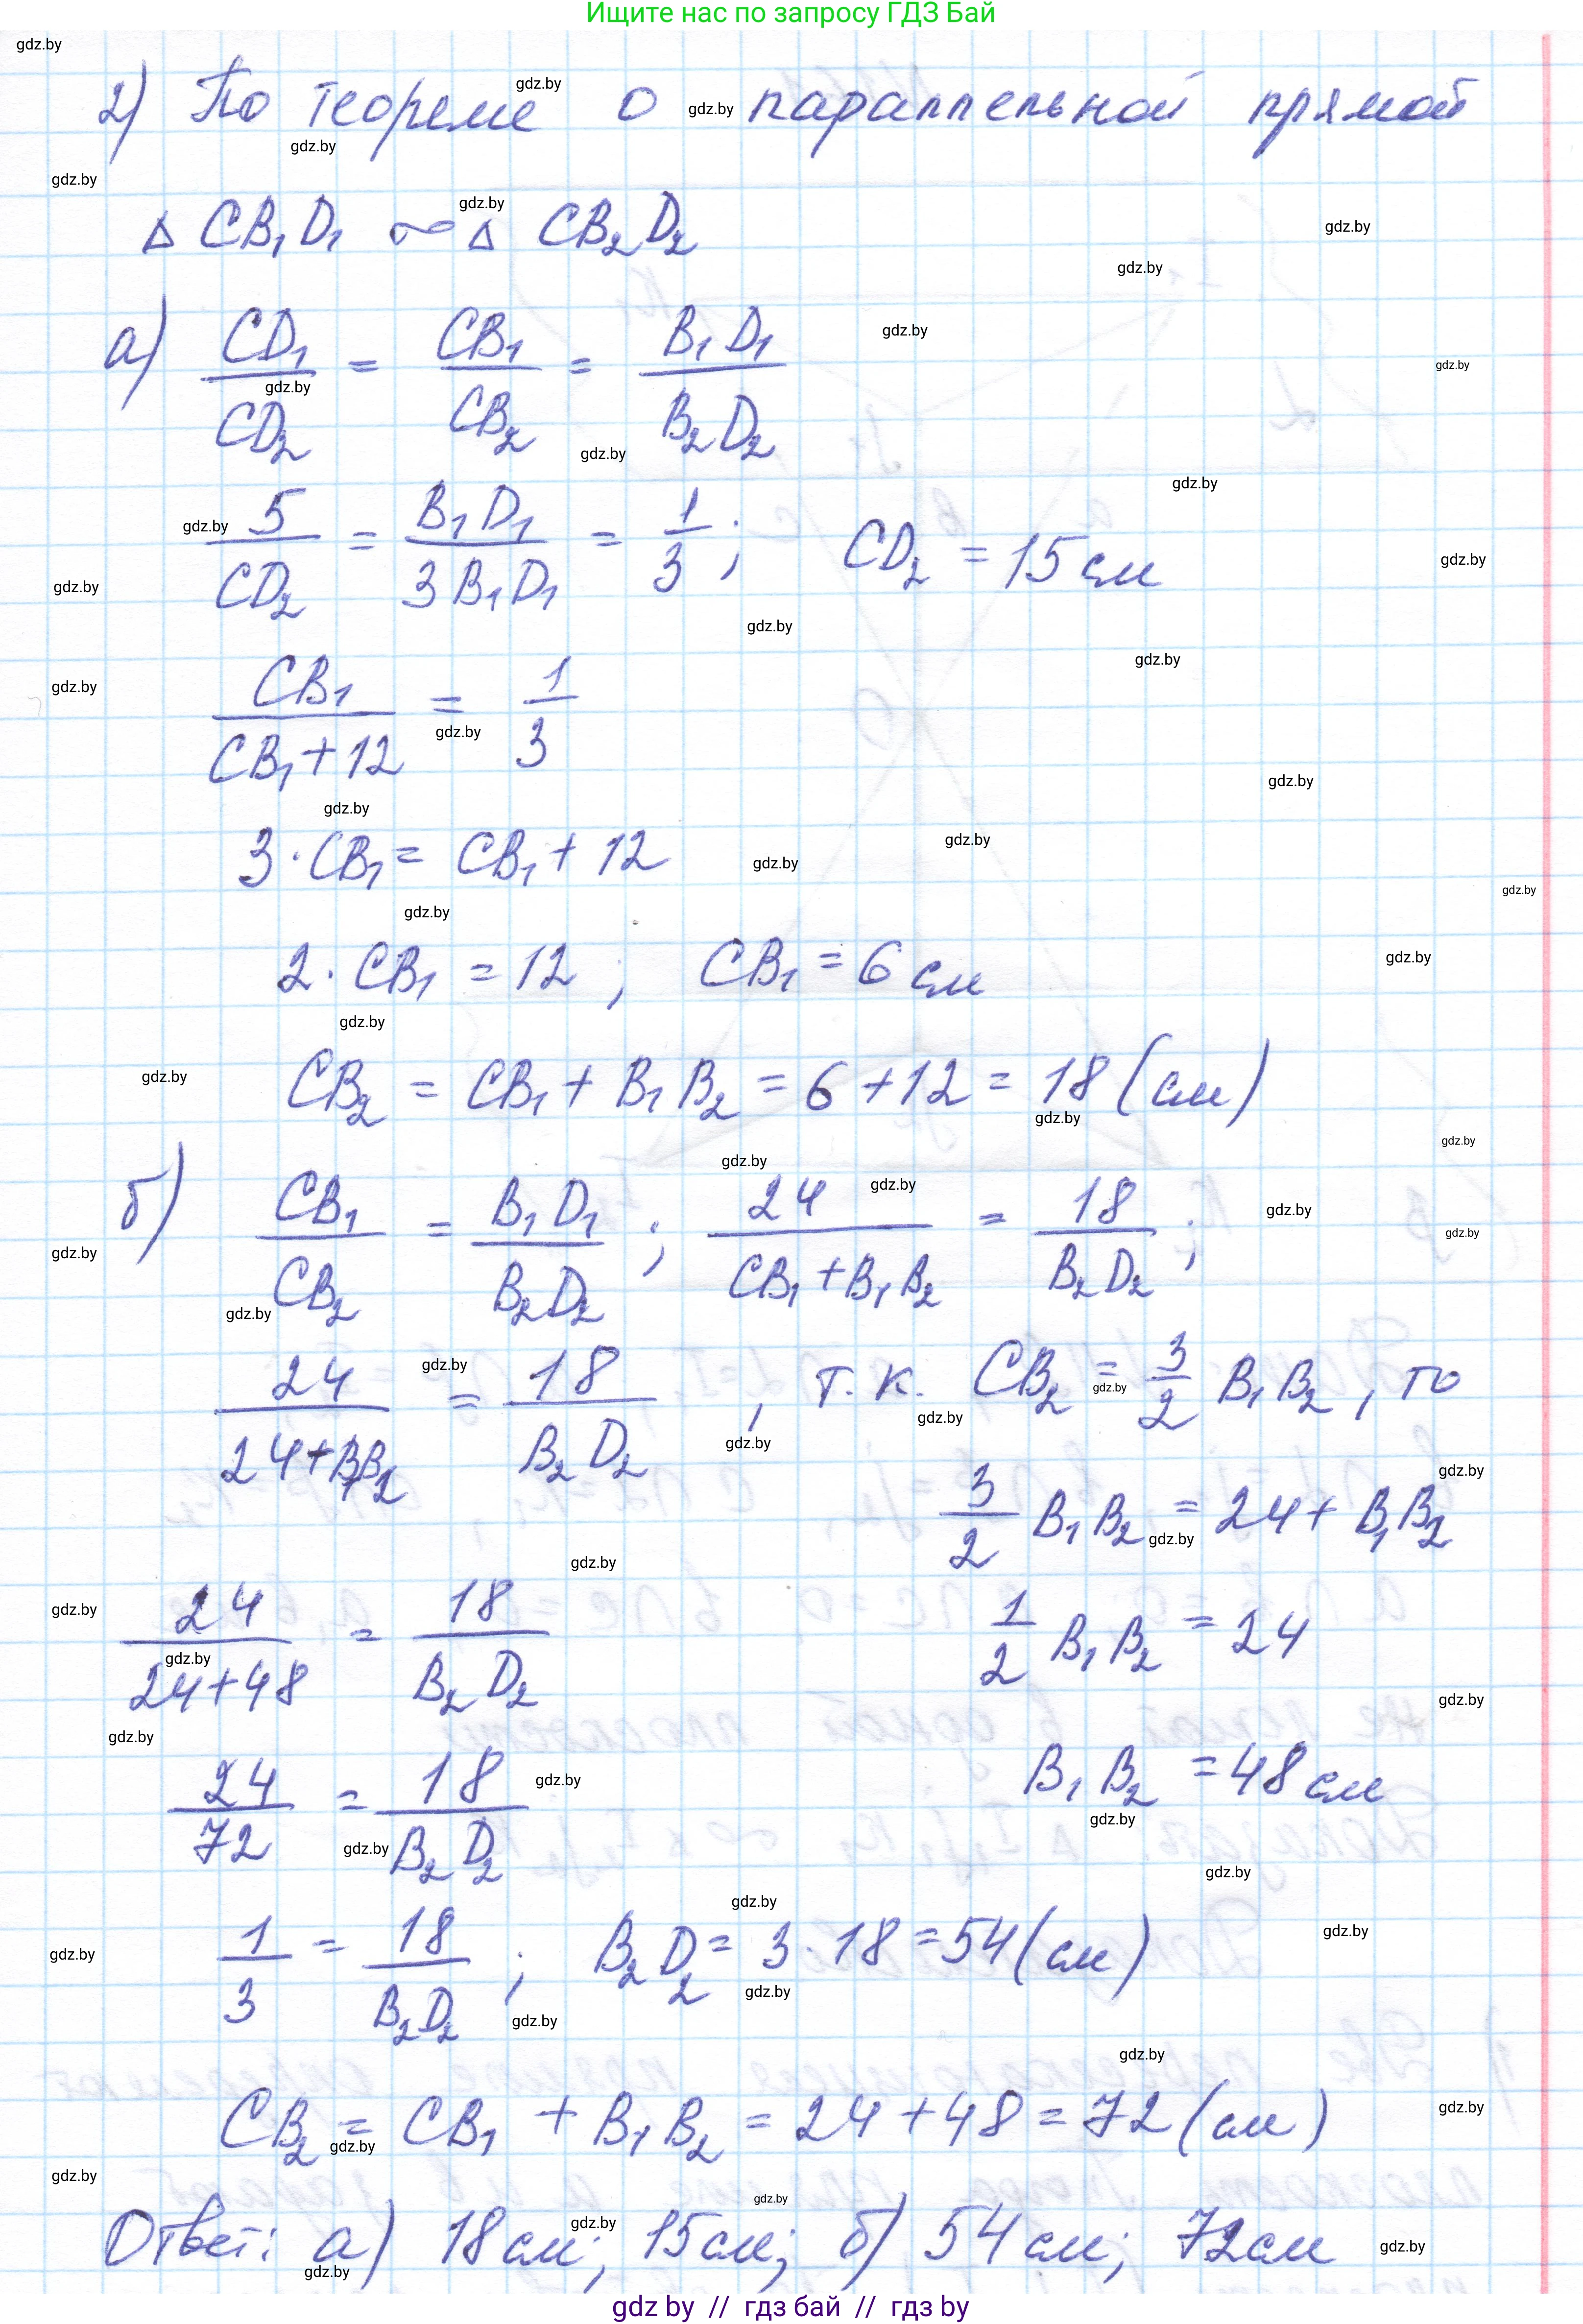 Ищите нас по запросу ГДЗ Бай
2) По теореме о параллельной прямой
△ CB₁D₁ ∾ △ CB₂D₂
а) CD₁/CD₂ = CB₁/CB₂ = B₁D₁/B₂D₂
5/CD₂ = B₁D₁/3B₁D₁ = 1/3; CD₂ = 15 см
CB₁/(CB₁+12) = 1/3
3·CB₁ = CB₁ + 12
2·CB₁ = 12; CB₁ = 6 см
CB₂ = CB₁ + B₁B₂ = 6 + 12 = 18 (см)
б) CB₁/CB₂ = B₁D₁/B₂D₂; 24/(CB₁+B₁B₂) = 18/B₂D₂;
24/(24+B₁B₂) = 18/B₂D₂, т.к. CB₂ = 3/2 B₁B₂, то
3/2 B₁B₂ = 24 + B₁B₂
24/(24+48) = 18/B₂D₂ 1/2 B₁B₂ = 24
24/72 = 18/B₂D₂ B₁B₂ = 48 см
1/3 = 18/B₂D₂; B₂D₂ = 3·18 = 54 (см)
CB₂ = CB₁ + B₁B₂ = 24 + 48 = 72 (см)
Ответ: а) 18 см; 15 см; б) 54 см; 72 см
gdz by // гдз бай // гдз by